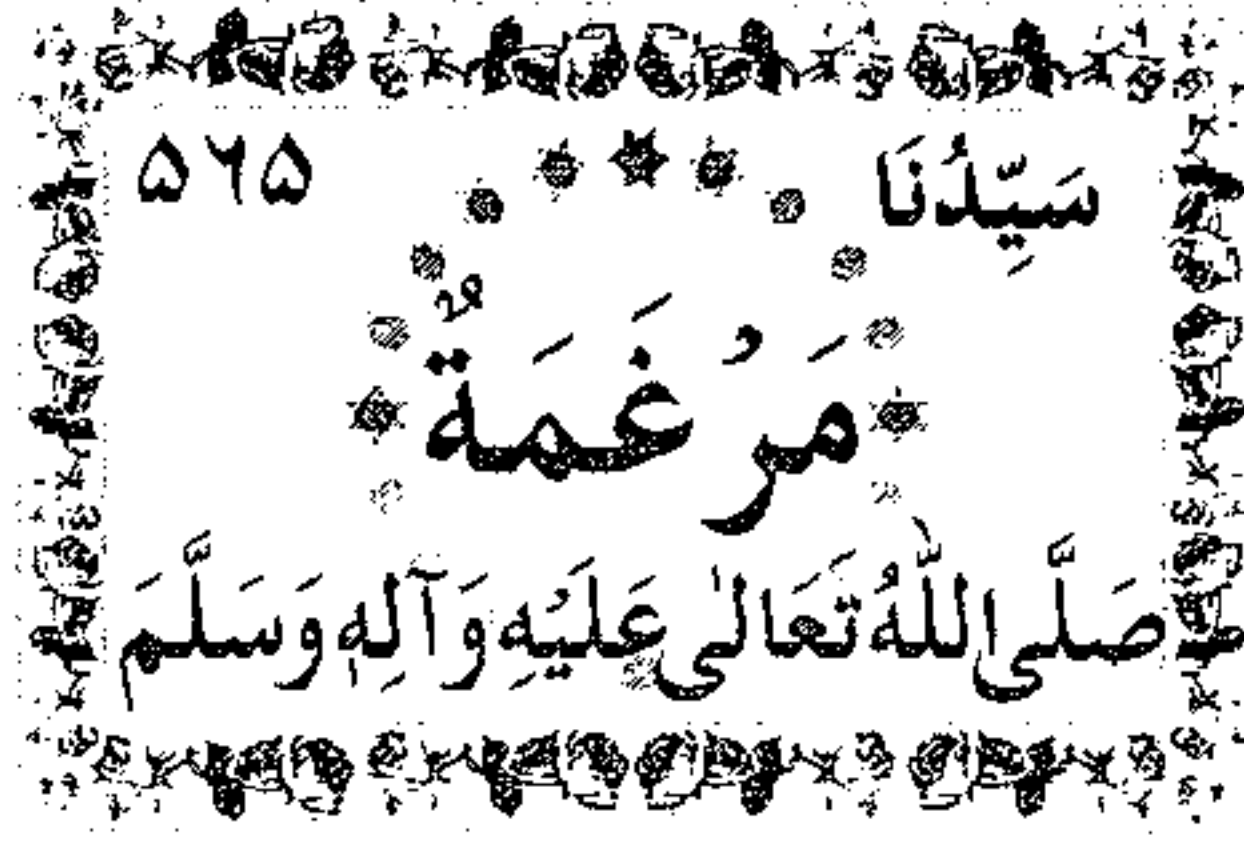 سَيِّدُنَا ۵۶۵
مَرْغَمَةٌ
صَلَّى اللّٰهُ تَعَالٰى عَلَيْهِ وَآلِهٖ وَسَلَّمَ